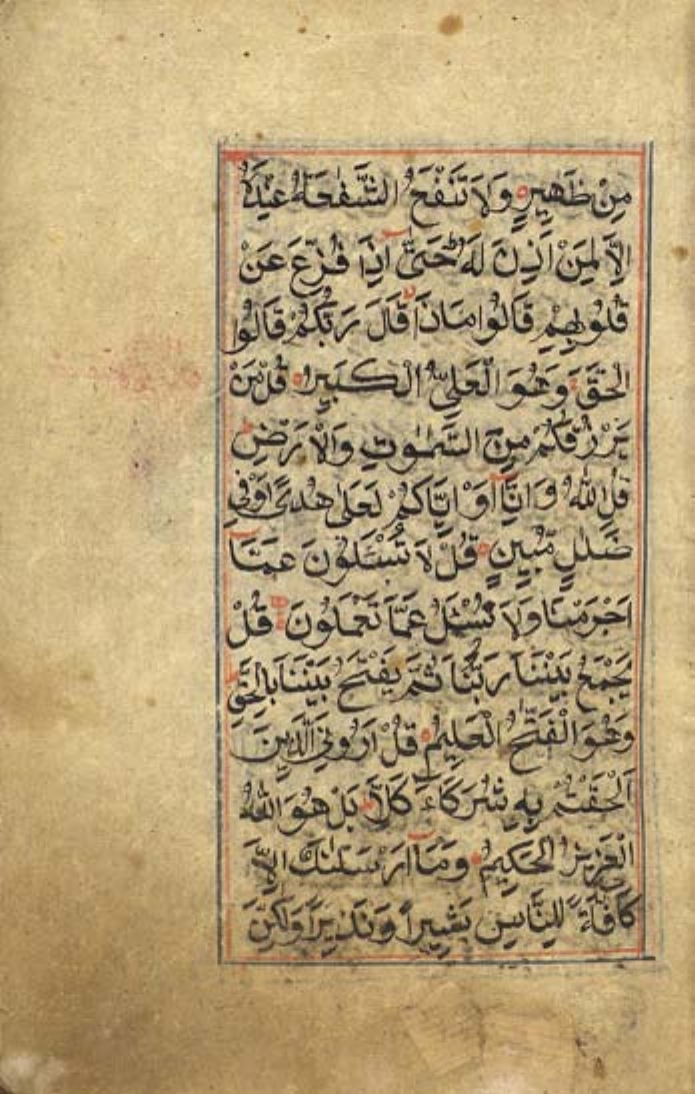 مِنْ ظَهِيرٍ وَلَا تَنْفَعُ الشَّفٰعَةُ عِنْدَهُ
اِلَّا لِمَنْ اَذِنَ لَهُ حَتّٰى اِذَا فُزِّعَ عَنْ
قُلُوبِهِمْ قَالُوا مَاذَا قَالَ رَبُّكُمْ قَالُوا
الْحَقَّ وَهُوَ الْعَلِىُّ الْكَبِيرُ قُلْ مَنْ
يَرْزُقُكُمْ مِنَ السَّمٰوٰتِ وَالْاَرْضِ
قُلِ اللّٰهُ وَاِنَّا اَوْ اِيَّاكُمْ لَعَلٰى هُدًى اَوْ فِى
ضَلٰلٍ مُّبِينٍ قُلْ لَا تُسْـَٔلُونَ عَمَّا
اَجْرَمْنَا وَلَا نُسْـَٔلُ عَمَّا تَعْمَلُونَ قُلْ
يَجْمَعُ بَيْنَنَا رَبُّنَا ثُمَّ يَفْتَحُ بَيْنَنَا بِالْحَقِّ
وَهُوَ الْفَتَّحُ الْعَلِيمُ قُلْ اَرُونِىَ الَّذِينَ
اَلْحَقْتُمْ بِهِ شُرَكَاءَ كَلَّا بَلْ هُوَ اللّٰهُ
الْعَزِيزُ الْحَكِيمُ وَمَا اَرْسَلْنٰكَ اِلَّا
كَافَّةً لِلنَّاسِ بَشِيرًا وَنَذِيرًا وَلٰكِنَّ